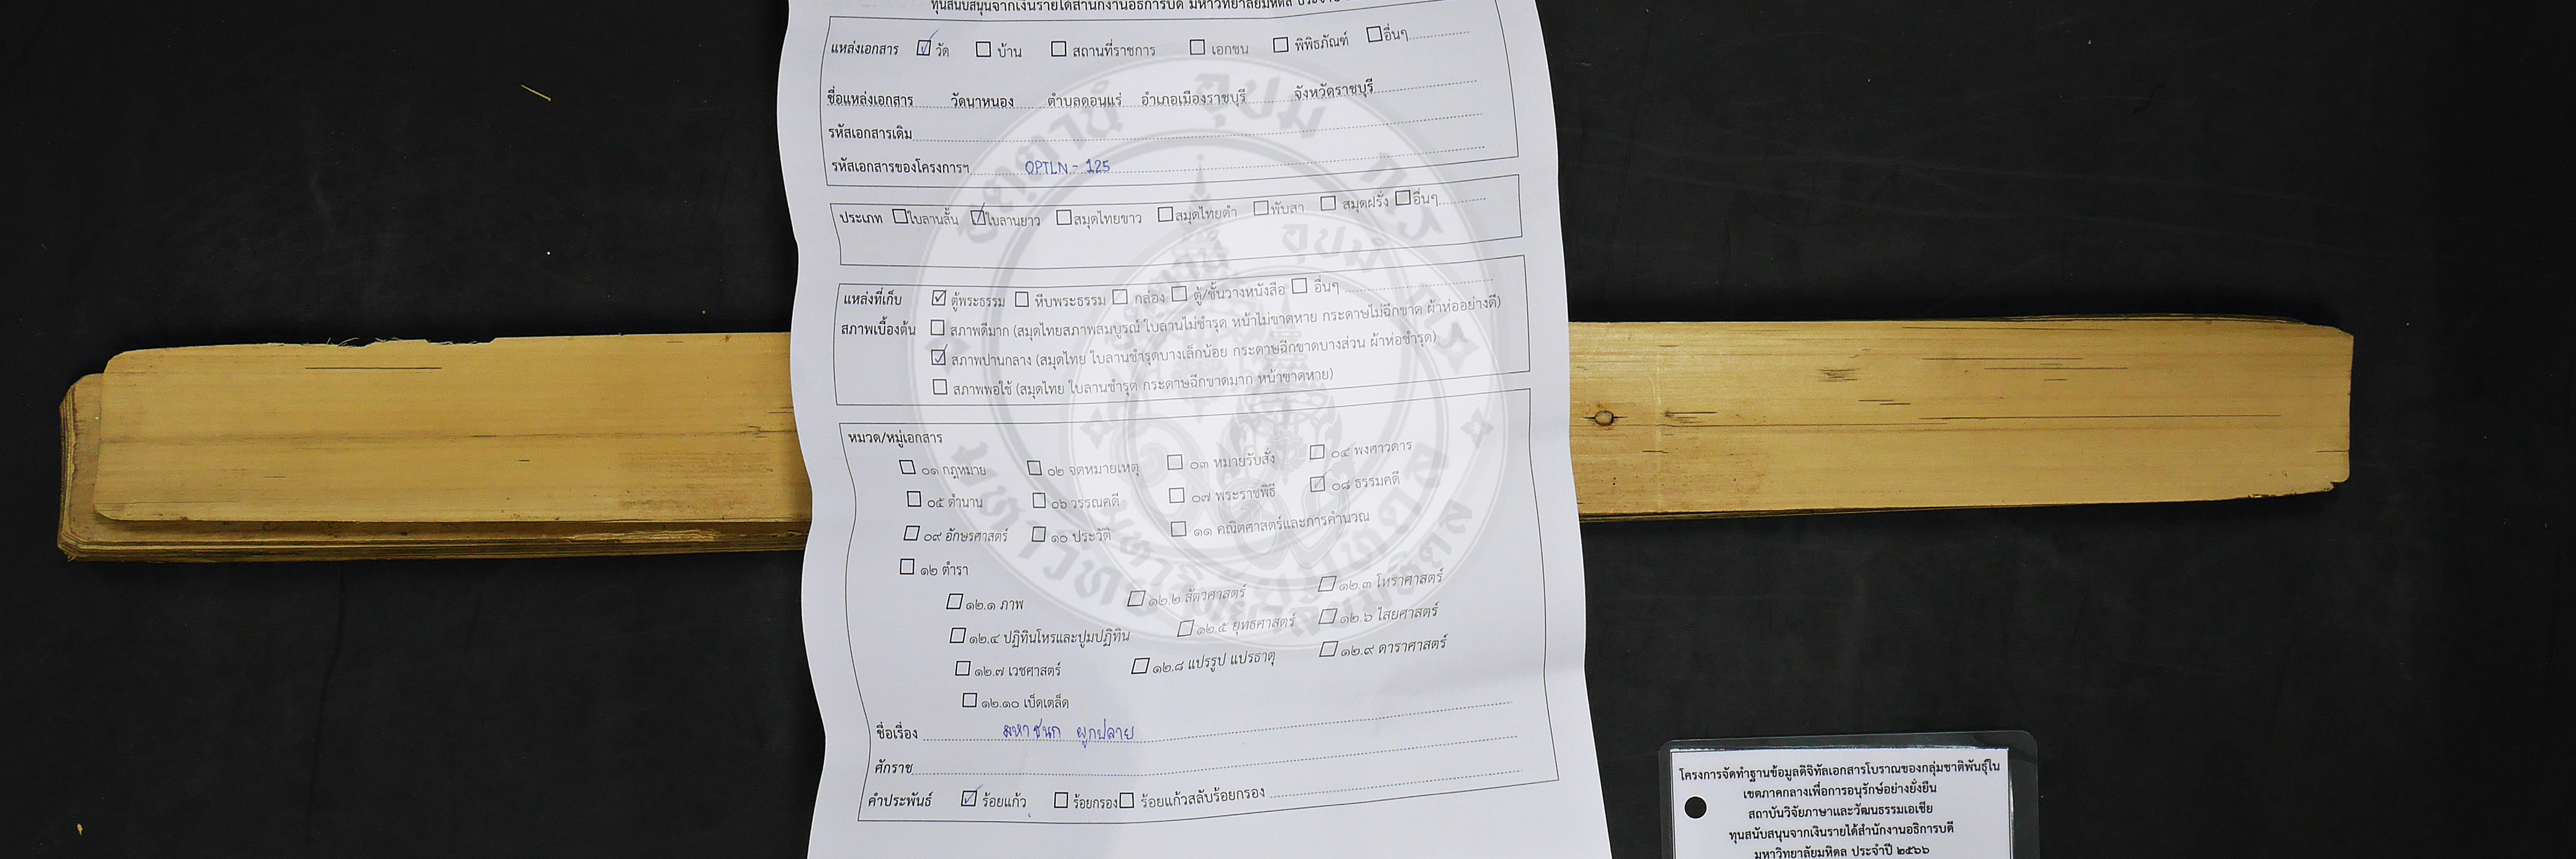 ทุนสนับสนุนจากเงินรายได้สำนักงานอธิการบดี มหาวิทยาลัยมหิดล
แหล่งเอกสาร วัด บ้าน สถานที่ราชการ เอกชน พิพิธภัณฑ์ อื่นๆ
ชื่อแหล่งเอกสาร วัดนาหนอง ตำบลดอนแร่ อำเภอเมืองราชบุรี จังหวัดราชบุรี
รหัสเอกสารเดิม
รหัสเอกสารของโครงการฯ OPTLN - 125
ประเภท ใบลานสั้น ใบลานยาว สมุดไทยขาว สมุดไทยดำ พับสา สมุดฝรั่ง อื่นๆ
แหล่งที่เก็บ ตู้พระธรรม หีบพระธรรม กล่อง ตู้/ชั้นวางหนังสือ อื่นๆ
สภาพเบื้องต้น สภาพดีมาก (สมุดไทยสภาพสมบูรณ์ ใบลานไม่ชำรุด หน้าไม่ขาดหาย กระดาษไม่ฉีกขาด ผ้าห่ออย่างดี)
สภาพปานกลาง (สมุดไทย ใบลานชำรุดบางเล็กน้อย กระดาษฉีกขาดบางส่วน ผ้าห่อชำรุด)
สภาพพอใช้ (สมุดไทย ใบลานชำรุด กระดาษฉีกขาดมาก หน้าขาดหาย)
หมวด/หมู่เอกสาร
๐๑ กฎหมาย ๐๒ จดหมายเหตุ ๐๓ หมายรับสั่ง ๐๔ พงศาวดาร
๐๕ ตำนาน ๐๖ วรรณคดี ๐๗ พระราชพิธี ๐๘ ธรรมคดี
๐๙ อักษรศาสตร์ ๑๐ ประวัติ ๑๑ คณิตศาสตร์และการคำนวณ
๑๒ ตำรา
๑๒.๑ ภาพ ๑๒.๒ สัตวศาสตร์ ๑๒.๓ โหราศาสตร์
๑๒.๔ ปฏิทินโหรและปูมปฏิทิน ๑๒.๕ ยุทธศาสตร์ ๑๒.๖ ไสยศาสตร์
๑๒.๗ เวชศาสตร์ ๑๒.๘ แปรรูป แปรธาตุ ๑๒.๙ ดาราศาสตร์
๑๒.๑๐ เบ็ดเตล็ด
ชื่อเรื่อง มหาชนก ผูกปลาย
ศักราช
คำประพันธ์ ร้อยแก้ว ร้อยกรอง ร้อยแก้วสลับร้อยกรอง
โครงการจัดทำฐานข้อมูลดิจิทัลเอกสารโบราณของกลุ่มชาติพันธุ์ใน
เขตภาคกลางเพื่อการอนุรักษ์อย่างยั่งยืน
สถาบันวิจัยภาษาและวัฒนธรรมเอเชีย
ทุนสนับสนุนจากเงินรายได้สำนักงานอธิการบดี
มหาวิทยาลัยมหิดล ประจำปี ๒๕๖๖